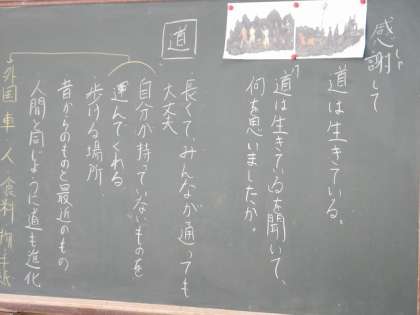 感謝して
道は生きている。
道は生きているを聞いて、
何を思いましたか。
道
・長くて、みんなが通っても
大丈夫
・自分が持っていないものを
運んでくれる
・歩ける場所
・昔からのものと最近のもの
・人間と同じように道も進化
外国 車 人 食料 物 手紙